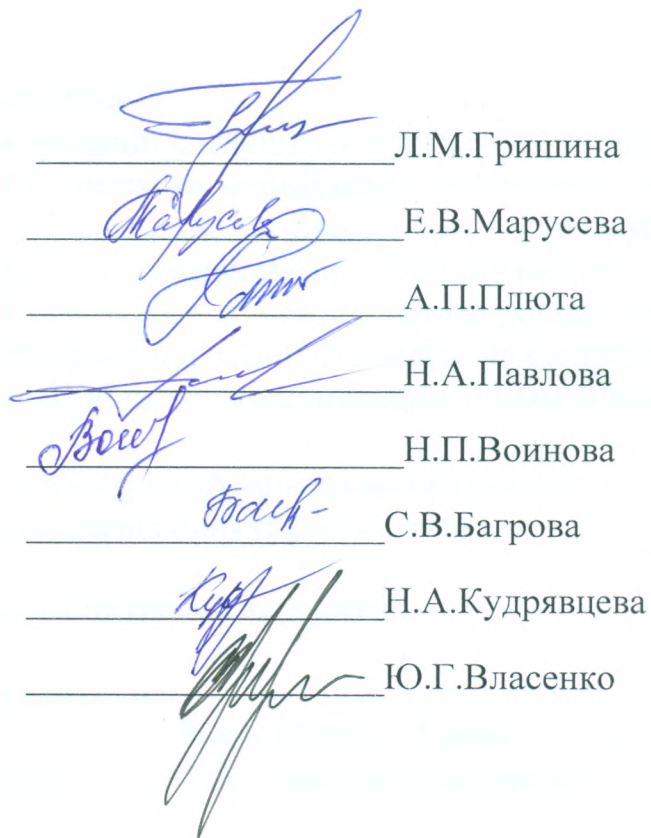 Л.М.Гришина
Е.В.Марусева
А.П.Плюта
Н.А.Павлова
Н.П.Воинова
С.В.Багрова
Н.А.Кудрявцева
Ю.Г.Власенко